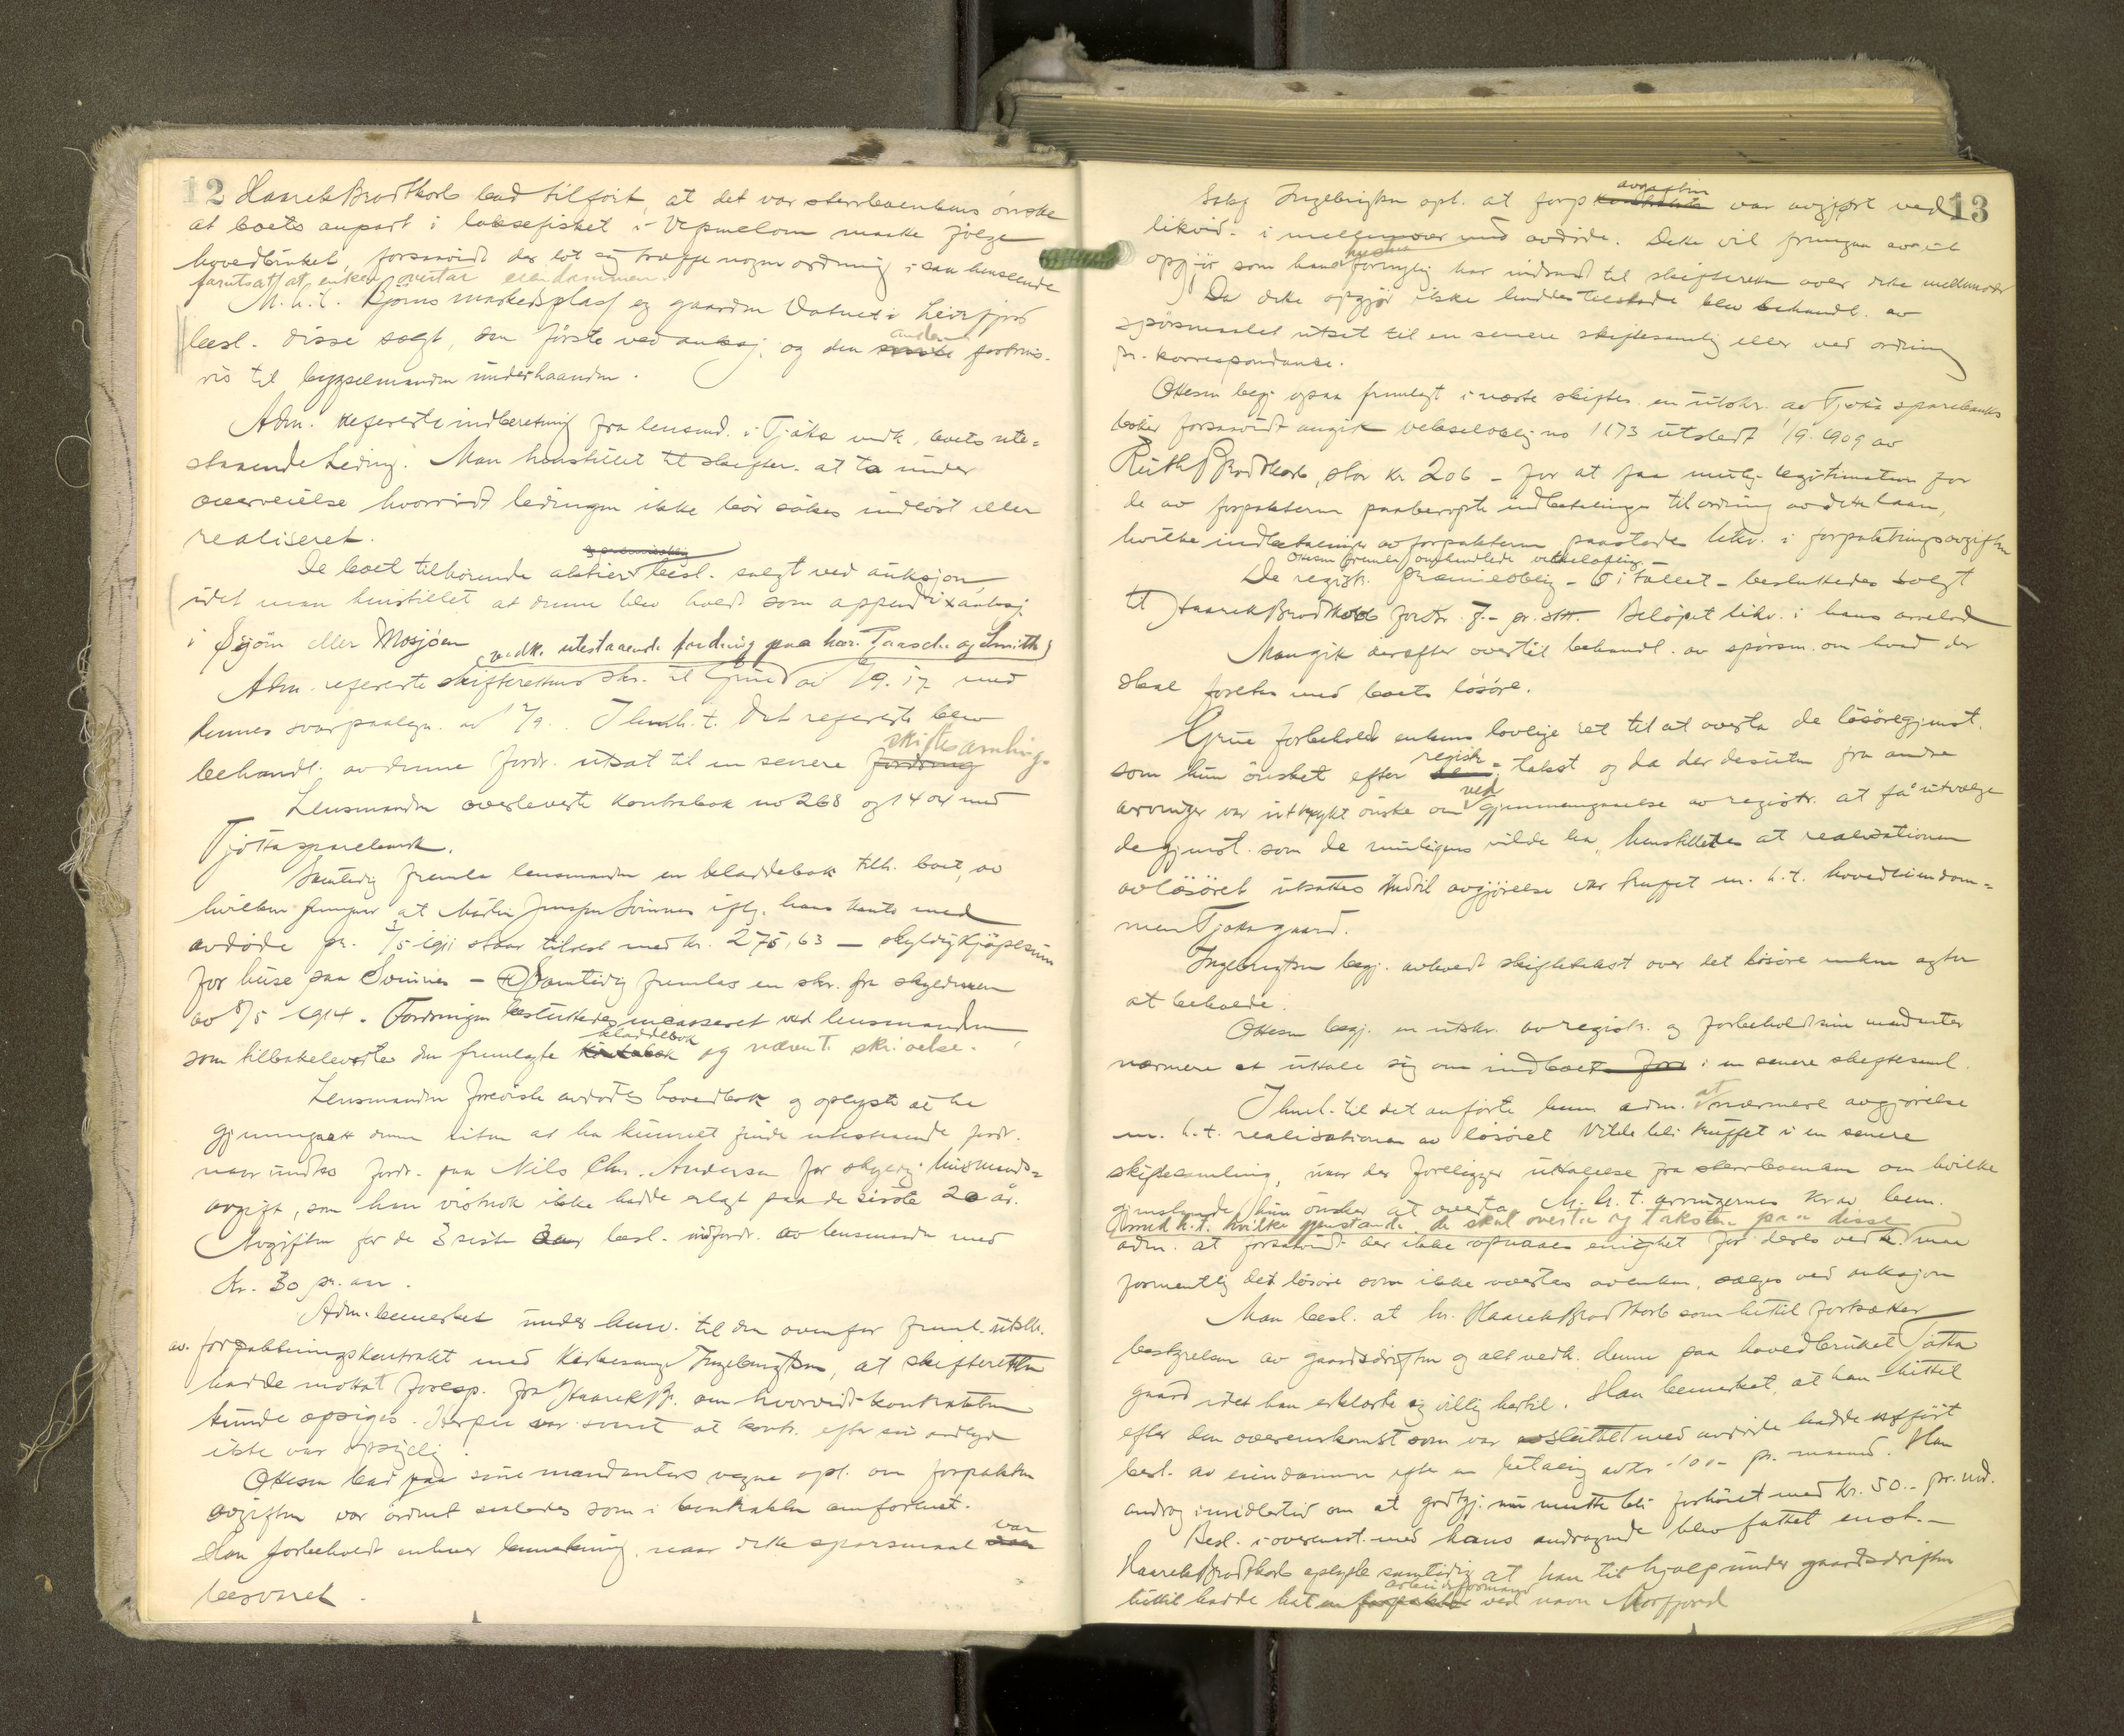 12
Haarek Brodtkorb bad tilført, at det var sterrboenkens ønske
at boets anpart i laksefisket i Vepmelom maatte følge
hovedbruket, forsaavidt der lot sig træffe nogen ordning i saa henseende
forutsatt at enken overtar eiendommen.
M.h.t. Bjørns markedsplass og gaarden Vatnet i Leirfjord
besl. disse solgt, den første ved auksj. og den anden fortrins-
vis til bygselmanden underhaanden.
Adm. refererte indberetning fra lensmd. i Tjøtta vedk. boets ute=
staaende leding. Man henstillet til skifter. at ta under
overveielse hvorvidt ledingen ikke bør søkes indløst eller
realiseret.
De boet tilhørende aktier besl. solgt ved auksjon
idet man henstillet at denne blev holdt som appendix auksj.
i Øsjøn eller Mosjøen
(vedk. utestaaende fordring paa har. Paasche og Smith)
Adm. refererte skifterettens skr. til Grue av /9. 17 med
dennes svarpaategn. av /9. I henh. t. det refererte blev
behandl. av denne fordr. utsat til en senere skiftesamling.
Lensmanden overleverte kontrabok no 268 og 1404 med
Tjøtta sparebank.
Samtidig fremla lensmanden en kladdebok tilh. boet, av
hvilken fremgaar at Martin Svinnes iflg. hans konto med
avdøde pr. 3/5 1911 staar tilrest med kr. 275,63 — skyldig kjøpesum
for huse paa Svinnes — Samtidig fremlas en skr. fra skyldneren
av 8/5 1914. Fordringen besluttedes incasseret ved lensmanden
som tilbakeleverte den fremlagte kladdebok og nævnt. skrivelse.
Lensmanden foreviste avdødes hovedbok og oplyste at ha
gjennemgaatt denne uten at ha kunnet finde utestaaende fordr.
naar undtas fordr. paa Nils Chr. Andersen for skyldig husmands=
avgift, som han vistnok ikke hadde erlagt paa de sidste 20 år.
Avgiften for de 3 siste aar besl. indfordr. av lensmanden med
kr. 30 pr. aar.
Adm. bemerket under henv. til den ovenfor freml. utskr.
av. forpaktningskontrakt med Kirkesanger Ingebrigtsen, at skifteretten
hadde mottat foresp. fra Haarek Br. om hvorvidt kontrakten
kunde opsiges. Herpaa var svaret at kontr. efter sin ordlyd
ikke var opsigelig.
Ottesen bad paa sine mandanters vegne opl. om forpaktn.
avgiften var ordnet saaledes som i kontrakten omforenet.
Han forbeholdt enhver bemerkning, naar dette spørsmaal var
besvaret.
13
Ingebrigtsen opl. at forp. avgiften var avgjort ved
likvid. i mellemvær med avdøde. Dette vil fremgaa av et
opgjør som hans hustru formentlig har indsendt til skifteretten over dette mellemvær
Da dette opgjør ikke haddes tilstede blev behandl. av
spørsmaalet utsat til en senere skiftesamling eller ved ordning
pr. korrespondanse.
Ottesen begj. ogsaa fremlagt i næste skiftes. en utskr. av Tjøtta sparebanks
bøker forsaavidt angik vekselobligj no 1173 utstedt 1/9. 1909 av
Ruth Brodtkorb, stor kr 206 - for at faa mulig legitimation for
de av forpakteren paaberopte indbetalinger til ordning av dette laan,
hvilke indbetalinger av forpakteren paastodes likv. i forpaktningsavgiften
Ottesen fremla omhandlede vekselobligj.
De registr. præmieoblig - 5 i tallet - besluttedes solgt
til Haarek Brodtkorb for kr. 7.- pr. stk. Beløpet likv. i hans arvelod
Man gik derefter over til behandl. av spørsm. om hvad der
skal foretas med boets løsøre.
Grue forbeholdt enkens lovlige ret til at overta de løsøregjenst.
som hun ønsket efter registr. takst og da der desuten fra andre
arvinger var uttrykt ønske om ved gjennemgaaelse av registr. at få utvælge
de gjenst. som de muligens vilde ha, henstilledes at realisationen
av løsøret utsattes indtil avgjørelse var truffet m.h.t. hovedeiendom=
men Tjøttagaard.
Ingebrigtsen begj. avholdt skiftetakst over det løsøre enken agter
at beholde.
Ottesen begj. en utskr. av registr. og forbeholdt sine mandanter
nærmere at uttale sig om indboet i en senere skiftesaml.
I henh. til det anførte bem. adm. at nærmere avgjørelse
m.h.t. realisationen av løsøret vilde bli truffet i en senere
skiftesamling, naar der foreligger uttalelse fra sterrboenken om hvilke
gjenstande hun ønsker at overta. M.h.t. arvingernes krav bem.
(med h.t. hvilke gjenstande de skal overta og taksten paa disse)
adm. at forsaavidt der ikke opnaaes enighet for deres vedk. maa
formentlig det løsøre som ikke overtas av enken, sælges ved auksjon
Man besl. at hr. Haarek Brodtkorb som hittil fortsætter
bestyrelsen av gaardsdriften og alt vedk. denne paa hovedbruket Tjøtta
gaard idet han erklærte sig villig hertil. Han bemerket, at han hittil
efter den overenskomst som var sluttet med avdøde hadde utført
best. av eiendommen efter en betaling av kr. 100- pr. maaned. Han
androg imidlertid om at godtgj. nu maatte bli forhøiet med kr. 50.- pr. md.
Besl. i overenst. med hans andragende blev fattet enst.-
Haarek Brodtkorb oplyste samtidig at han til hjælp under gaardsdriften
hittil hadde hat en arbeidsformand ved navn Morfjord